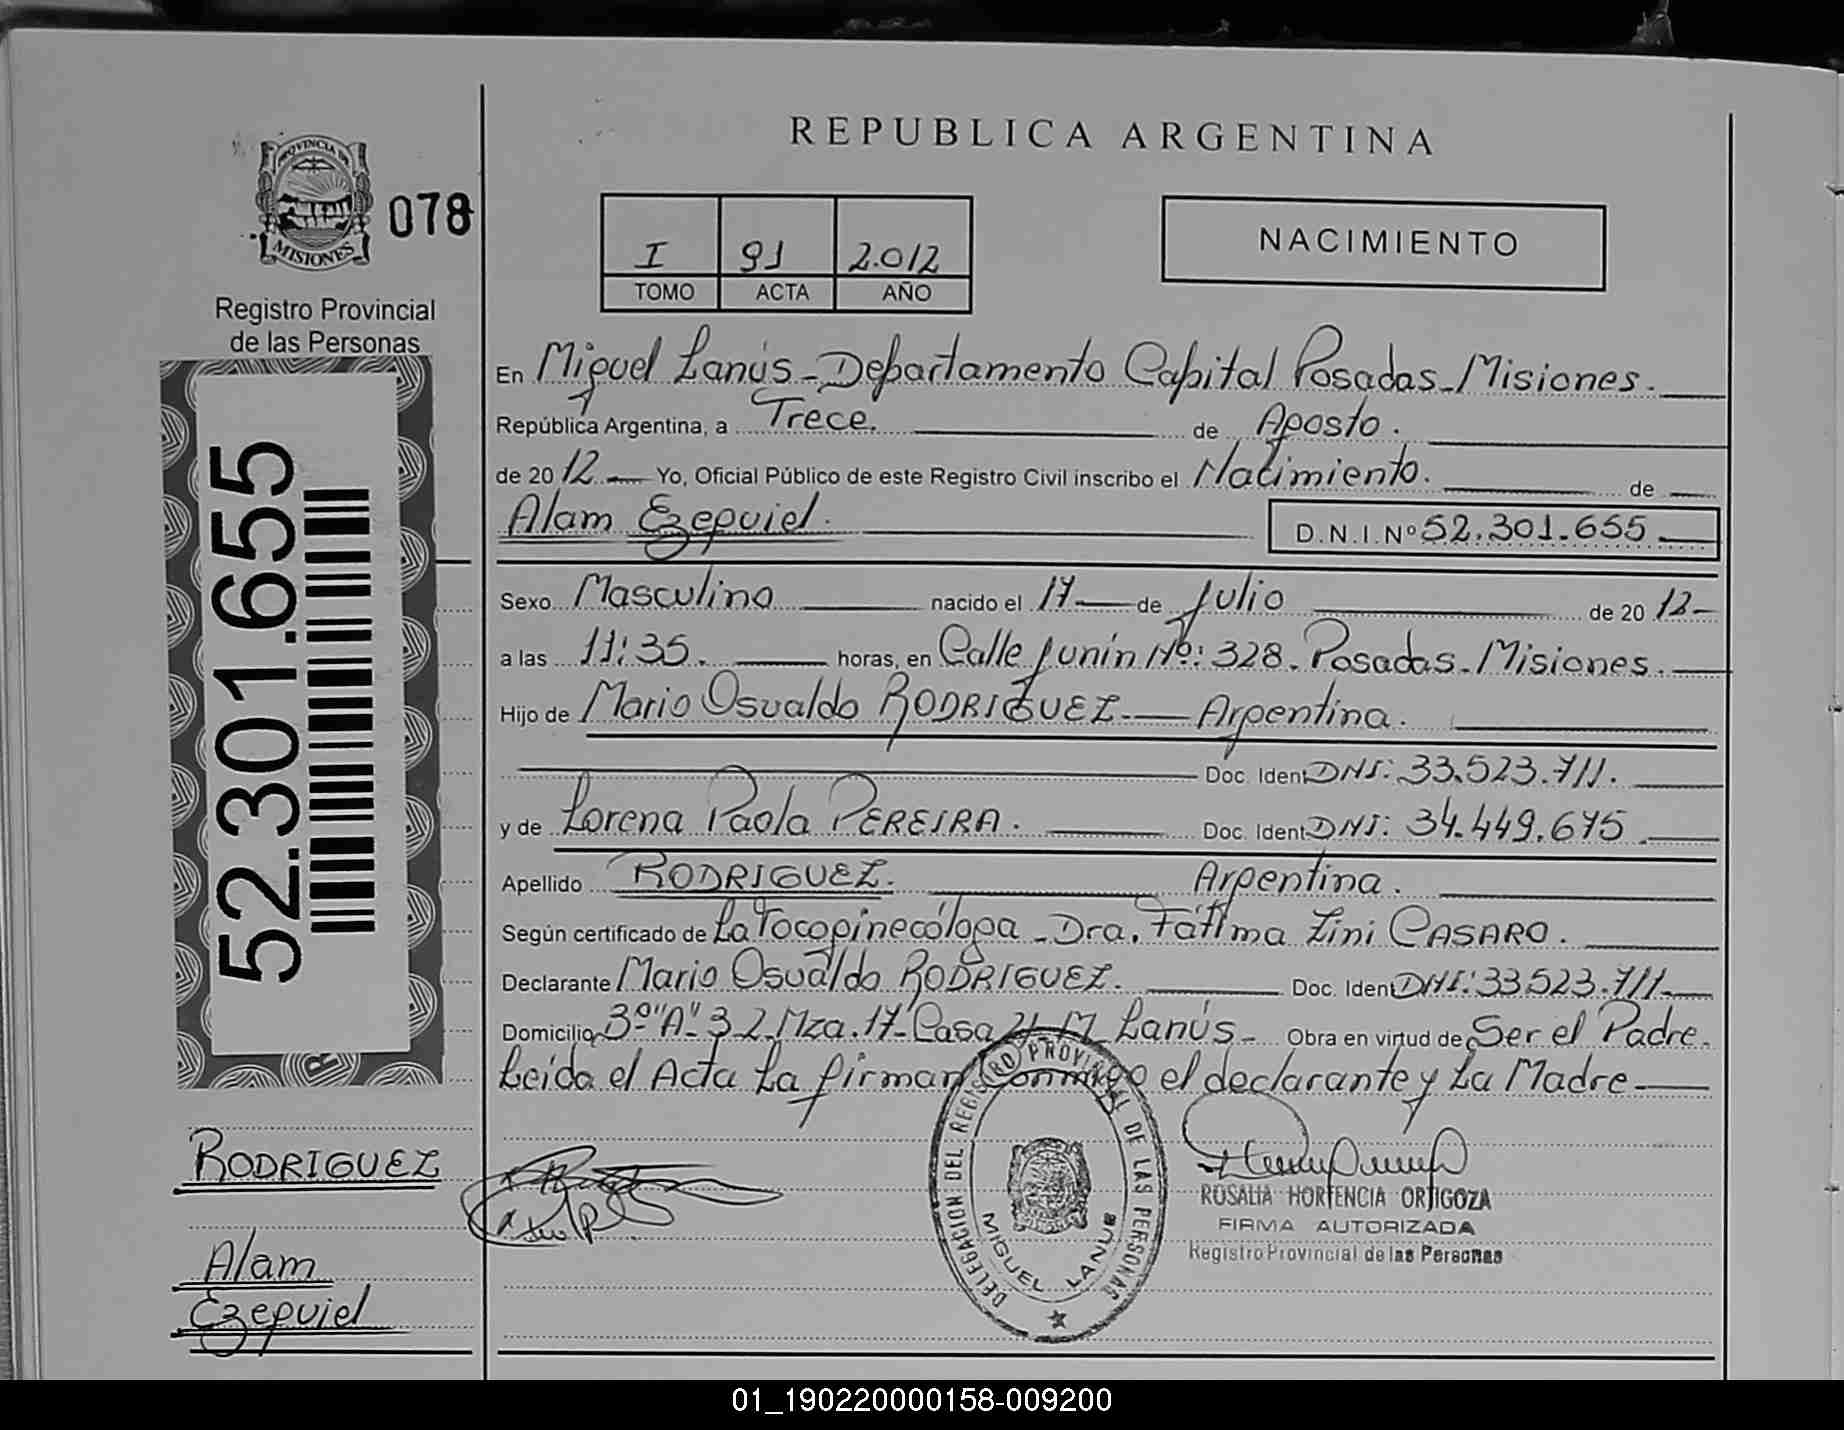 REPUBLICA ARGENTINA
PROVINCIA DE
MISIONES
078
Registro Provincial
de las Personas
I 91 2.012
TOMO ACTA AÑO
NACIMIENTO
52.301.655
En Miguel Lanús - Departamento Capital Posadas - Misiones.
República Argentina, a Trece. de Agosto.
de 2012 Yo, Oficial Público de este Registro Civil inscribo el Nacimiento. de
Alam Ezequiel. D.N.I. Nº 52.301.655
Sexo Masculino nacido el 17 de Julio de 2012
a las 11:35. horas, en Calle Junín Nº: 328. Posadas - Misiones.
Hijo de Mario Osvaldo RODRIGUEZ. Argentina.
Doc. Ident DNI: 33.523.711.
y de Lorena Paola PEREIRA. Doc. Ident DNI: 34.449.675
Apellido RODRIGUEZ. Argentina.
Según certificado de La Tocoginecóloga - Dra. Fátima Zini CASARO.
Declarante Mario Osvaldo RODRIGUEZ. Doc. Ident DNI: 33523.711
Domicilio 3º "A" 32 Mza. 17 - Casa 21 M. Lanús - Obra en virtud de Ser el Padre.
Leída el Acta La firman Conmigo el declarante y La Madre
RODRIGUEZ
Alam
Ezequiel
DELEGACION DEL REGISTRO PROVINCIAL DE LAS PERSONAS
MIGUEL LANUS
ROSALIA HORTENCIA ORTIGOZA
FIRMA AUTORIZADA
Registro Provincial de las Personas
01_190220000158-009200